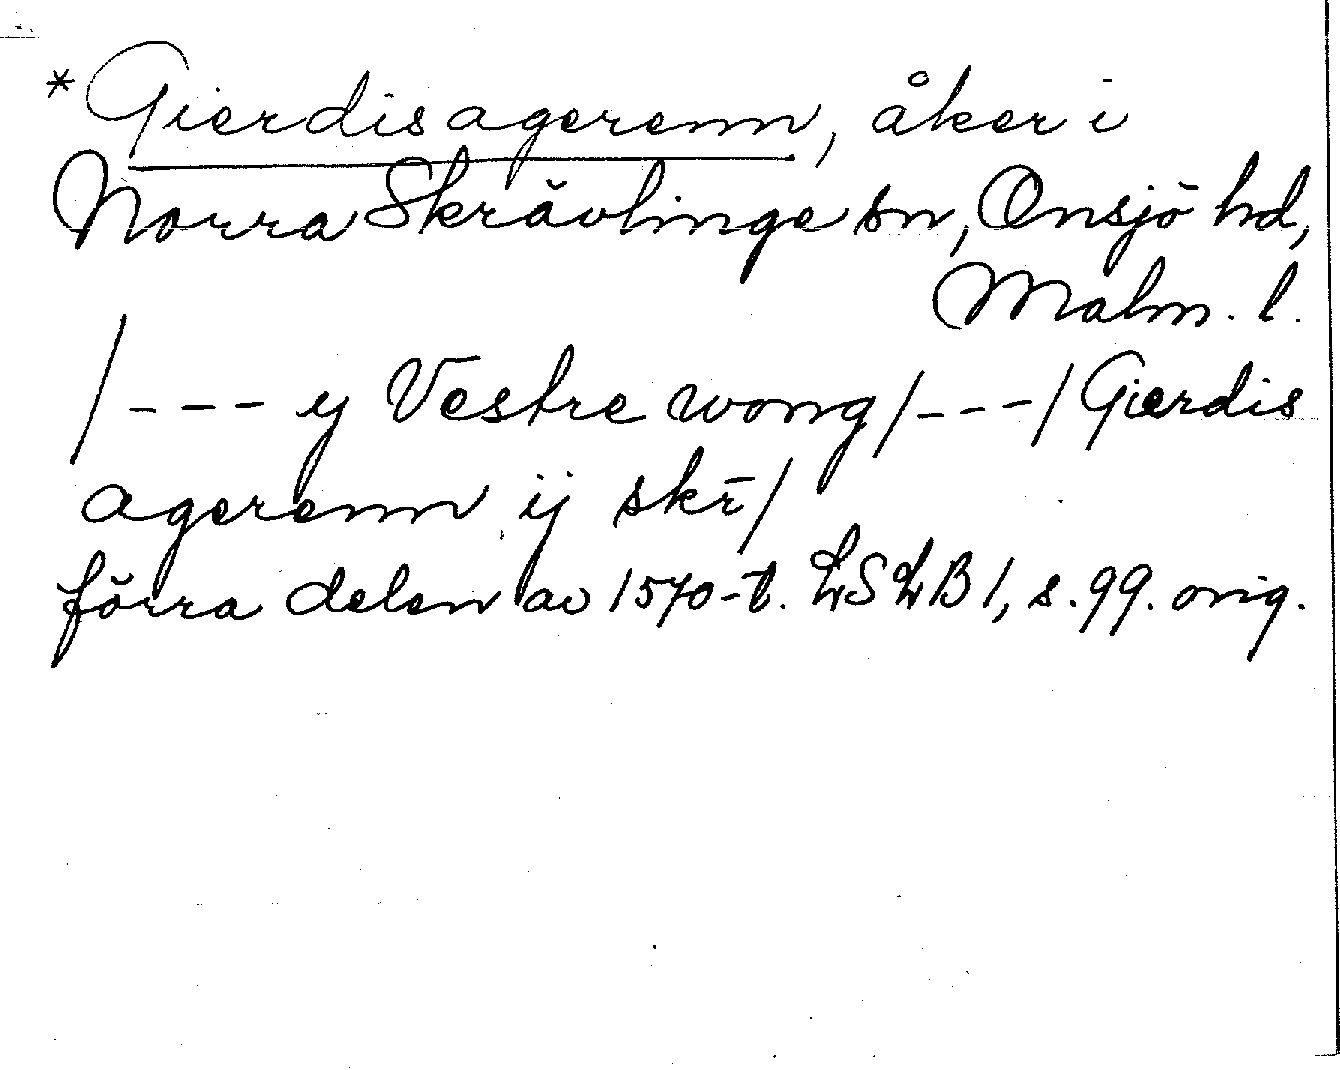 *Gierdisagerenn, åker i
Norra Skrävlinge sn, Onsjö hd,
Malm. l.
/--- y Vestre wong/---/Gierdis
agerenn ij skr̄/
förra delen av 1570-t. LSLB 1, s. 99. orig.